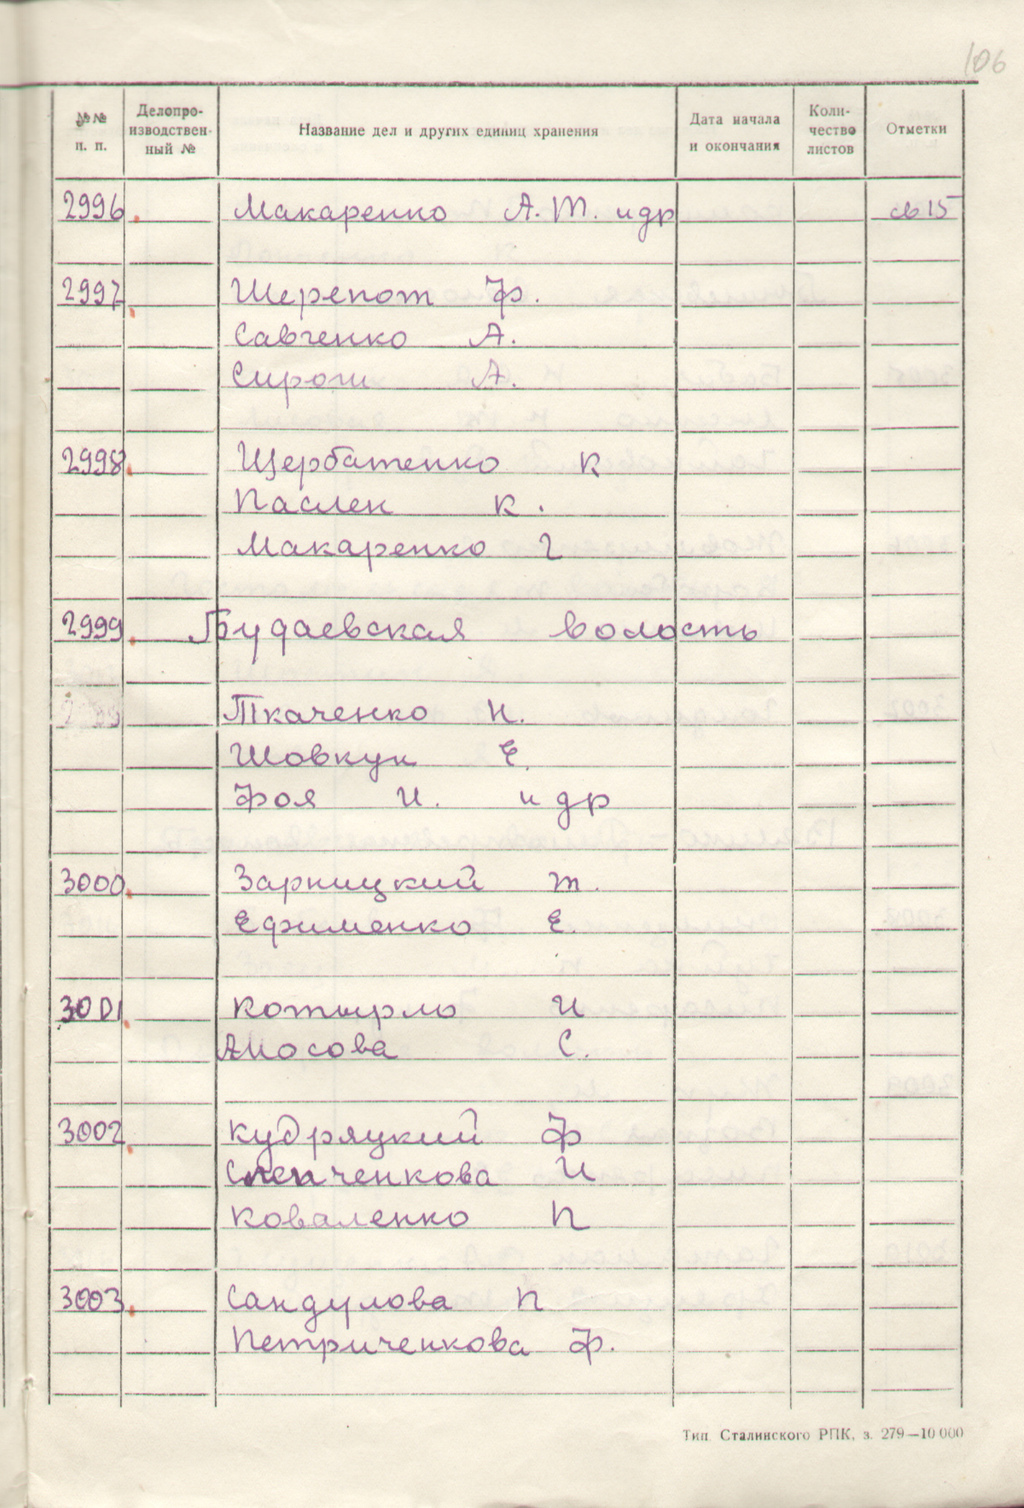 106
№№ п. п. Делопроизводственный № Название дел и других единиц хранения Дата начала и окончания Количество листов Отметки
2996. Макаренко А. Т. и др св 15
2997. Шерепот Ф.
Савченко А.
Сирош А.
2998. Щербатенко К
Паслен К.
Макаренко Г
2999. Будаевская волость
Ткаченко Н.
Шовкун Е.
Фоя И. и др
3000. Зарницкий Т.
Ефименко Е.
3001. Котырло И
Аносова С.
3002. Кудряцкий Ф
Слепченкова И
Коваленко П
3003. Сандулова П
Петриченкова Ф.
Тип. Сталинского РПК, з. 279—10 000